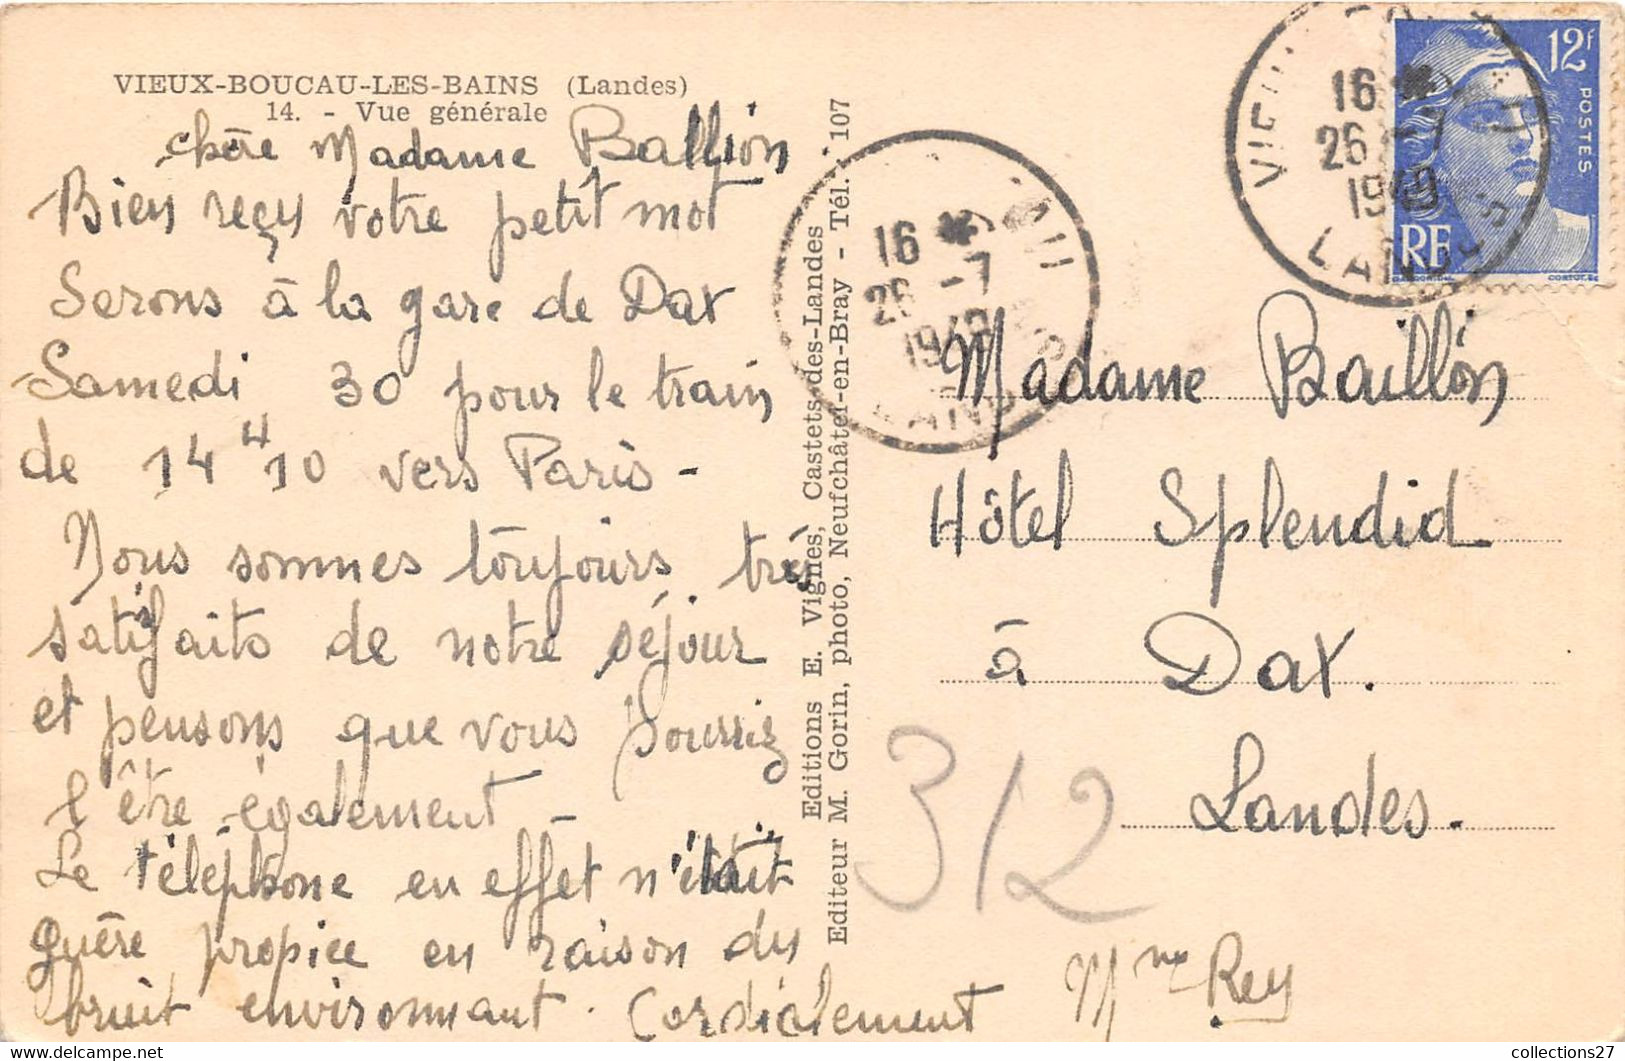 VIEUX-BOUCAU-LES-BAINS (Landes)
14. - Vue générale
chère Madame Ballion
Bien reçu votre petit mot
Serons à la gare de Dax
Samedi 30 pour le train
de 14H10 vers Paris -
Nous sommes toujours très
satisfaits de notre séjour
et pensons que vous pourriez
l'être également -
Le téléphone en effet n'était
guère propice en raison du
bruit environnant. Cordialement
Mme Rey
Editions E. Vignes, Castets-des-Landes
Editeur M. Gorin, photo, Neufchâtel-en-Bray - Tél. 107
16 *
26 -7
1949
LANDES
16 *
26 -7
1949
LANDES
12f
POSTES
RF
Madame Baillon
Hôtel Splendid
à Dax.
Landes.
312
collections27